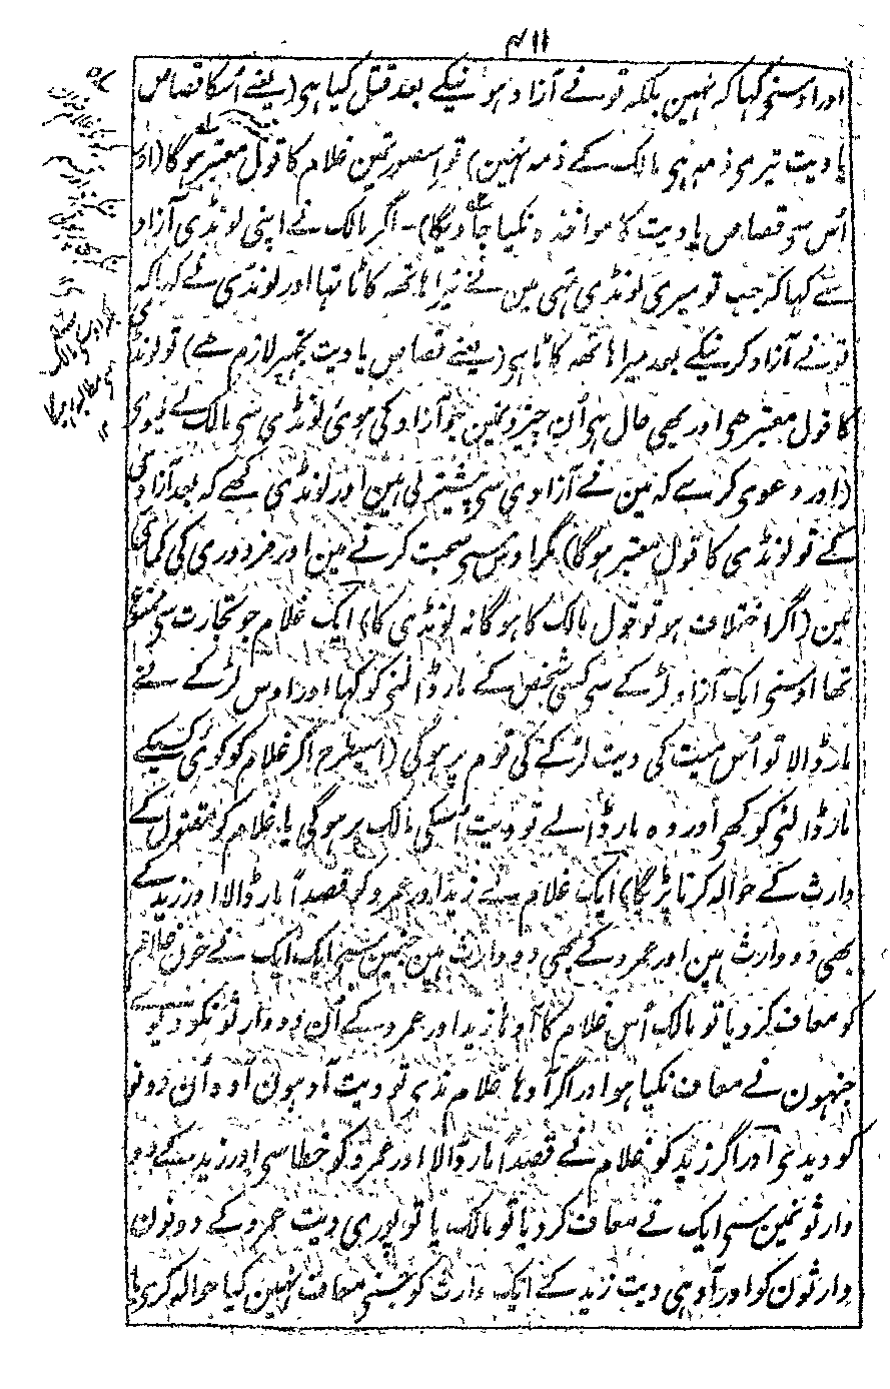 ۴۱۱
اور اوسنے کہا کہ نہین بلکہ تونے آزاد ہونیکے بعد قتل کیا ہی (یعنے اسکا قصاص
یا دیت تیری ذمہ ہی مالک کے ذمہ نہین) تو اسصورتمین غلام کا قول معتبر ہوگا (اور
اُس سے قصاص یا دیت کا مواخذہ نکیا جاویگا)۔ اگر مالک نے اپنی لونڈی آزاد
سے کہا کہ جب تو میری لونڈی تہی مین نے تیرا ہاتھہ کاٹا تہا اور لونڈی نے کہا کہ
تونے آزاد کرنیکے بعد میرا ہاتھہ کاٹا ہی (یعنے قصاص یا دیت تجہپر لازم ہے) تو لونڈی
کا قول معتبر ہی اور یہی حال ہی اُن چیزونمین جو آزاد کی ہوئی لونڈی سی مالک نے لیوی
(اور دعوی کرے کہ مین نے آزادی سی پیشتر لی ہین اور لونڈی کہے کہ بعد آزادی
کے تو لونڈی کا قول معتبر ہوگا) مگر اوس سی صحبت کرنے مین اور مزدوری کی کمائی
مین (اگر اختلاف ہو تو قول مالک کا ہوگا نہ لونڈی کا) ایک غلام جو تجارت سی ممنوع
تہا اوسنے ایک آزاد لڑکے سی کسی شخص کے مار ڈالنے کو کہا اور اوس لڑکے نے
مار ڈالا تو اُس میت کی دیت لڑکے کی قوم پر ہوگی (اسیطرح اگر غلام کو کوئی کسیکے
مار ڈالنے کو کہے اور وہ مار ڈالے تو دیت اُسکی مالک پر ہوگی یا غلام کو مقتول کے
وارث کے حوالہ کرنا پڑیگا) ایک غلام نے زید اور عمرو کو قصداً مار ڈالا اور زید کے
بھی دو وارث ہین اور عمرو کے بھی دو وارث ہین جنمین سی ایک ایک نے خون غلام
کو معاف کردیا تو مالک اُس غلام کا آدہا زید اور عمرو کے اُن دو وارثونکو دیوے
جنہون نے معاف نکیا ہو اور اگر آدہا غلام ندی تو دیت آدہون آدہ اُن دونو
کو دیدی اور اگر زید کو غلام نے قصداً مار ڈالا اور عمرو کو خطا سی اور زید کے دو
وارثونمین سی ایک نے معاف کردیا تو مالک یا تو پوری دیت عمرو کے دونون
وارثون کو اور آدہی دیت زید کے ایک وارث کو جسنے معاف نہین کیا حوالہ کری یا